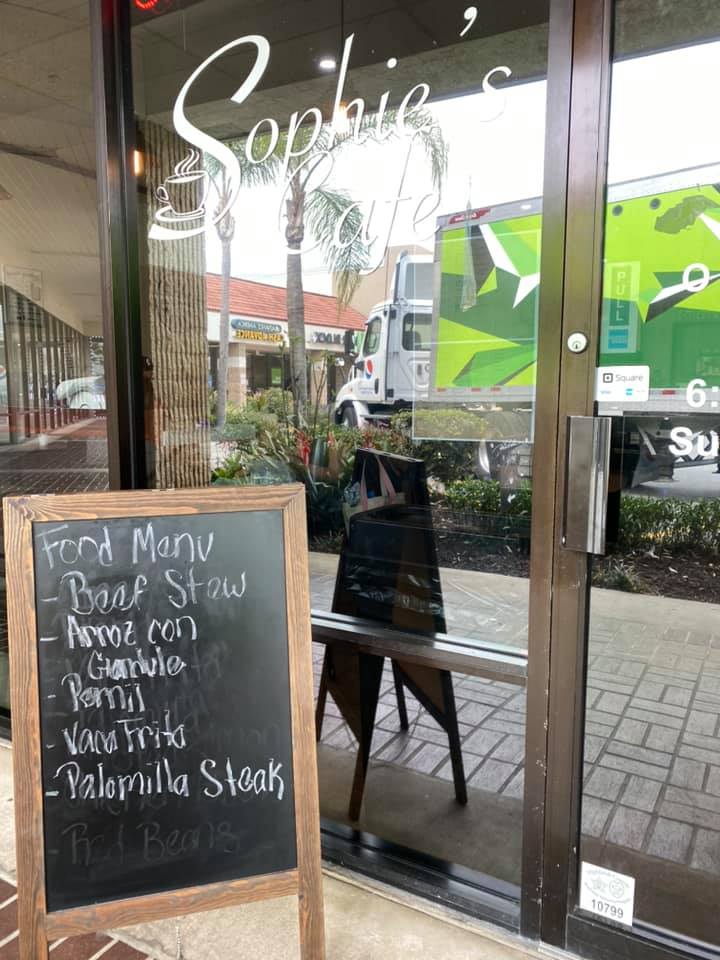 Sophie's
Cafe
PULL
O
Square
6:
Su
Food Menu
- Beef Stew
- Arroz con
Gandule
- Pernil
- Vaca Frita
- Palomilla Steak
- Red Beans
10799